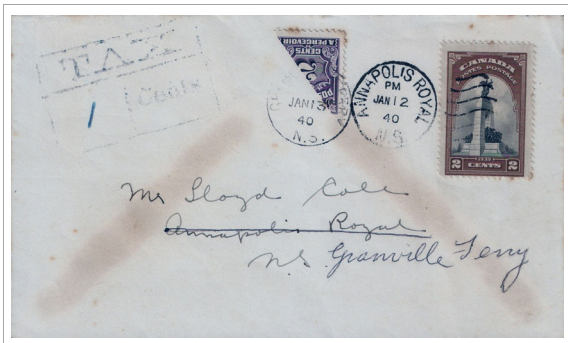 TAX
1 Cents
A PERCEVOIR
2
JAN 13
40
N.S.
ANNAPOLIS ROYAL
PM
JAN 12
40
N.S.
CANADA
POSTES POSTAGE
1939
2 CENTS 2
Mr Lloyd Cole
Annapolis Royal
N.S. Granville Ferry